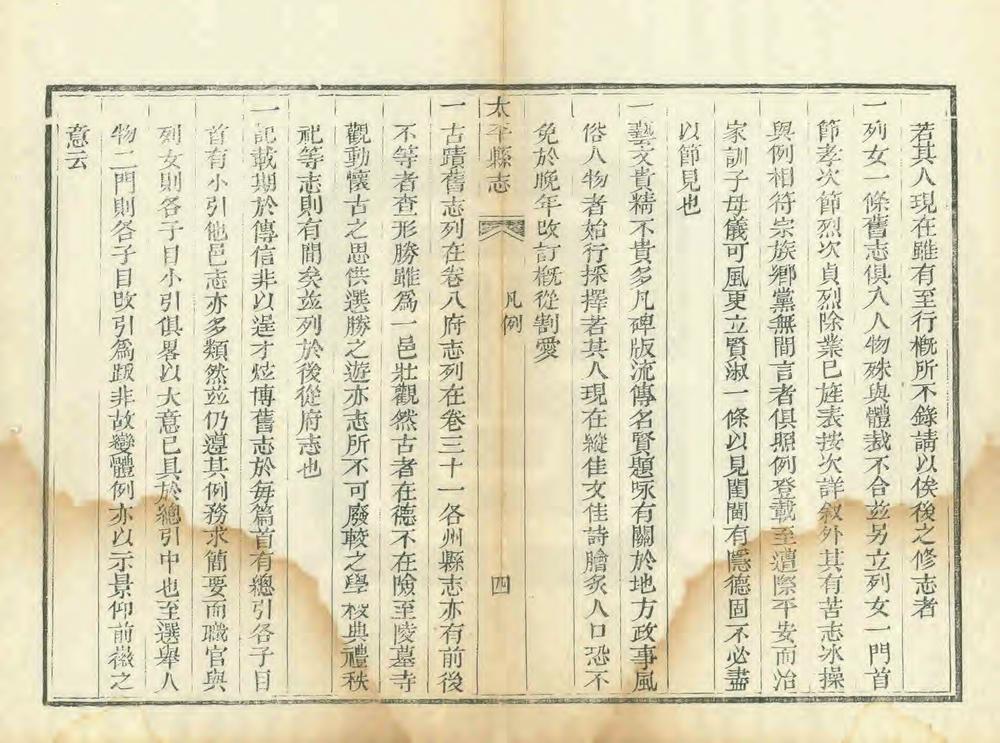 若其人現在雖有至行槪所不錄請以俟後之修志者
一列女一條舊志俱入人物殊與體裁不合茲另立列女一門首
節孝次節烈次貞烈除業已旌表按次詳敘外其有苦志冰操
與例相符宗族鄉黨無間言者俱照例登載至遭際平安而治
家訓子母儀可風更立賢淑一條以見閨閫有隱德固不必盡
以節見也
一藝文貴精不貴多凡碑版流傳名賢題咏有關於地方政事風
俗人物者始行採擇若其人現在縱佳文佳詩膾炙人口恐不
免於晚年改訂槪從割愛
太平縣志
凡例
四
一古蹟舊志列在卷八府志列在卷三十一各州縣志亦有前後
不等者查形勝雖爲一邑壯觀然古者在德不在險至陵墓寺
觀動懷古之思供選勝之遊亦志所不可廢較之學校典禮秩
祀等志則有間矣茲列於後從府志也
一記載期於傳信非以逞才炫博舊志於每篇首有總引各子目
首有小引他邑志亦多類然茲仍遵其例務求簡要而職官與
列女則各子目小引俱畧以大意已具於總引中也至選舉人
物二門則各子目改引爲跋非故變體例亦以示景仰前徽之
意云